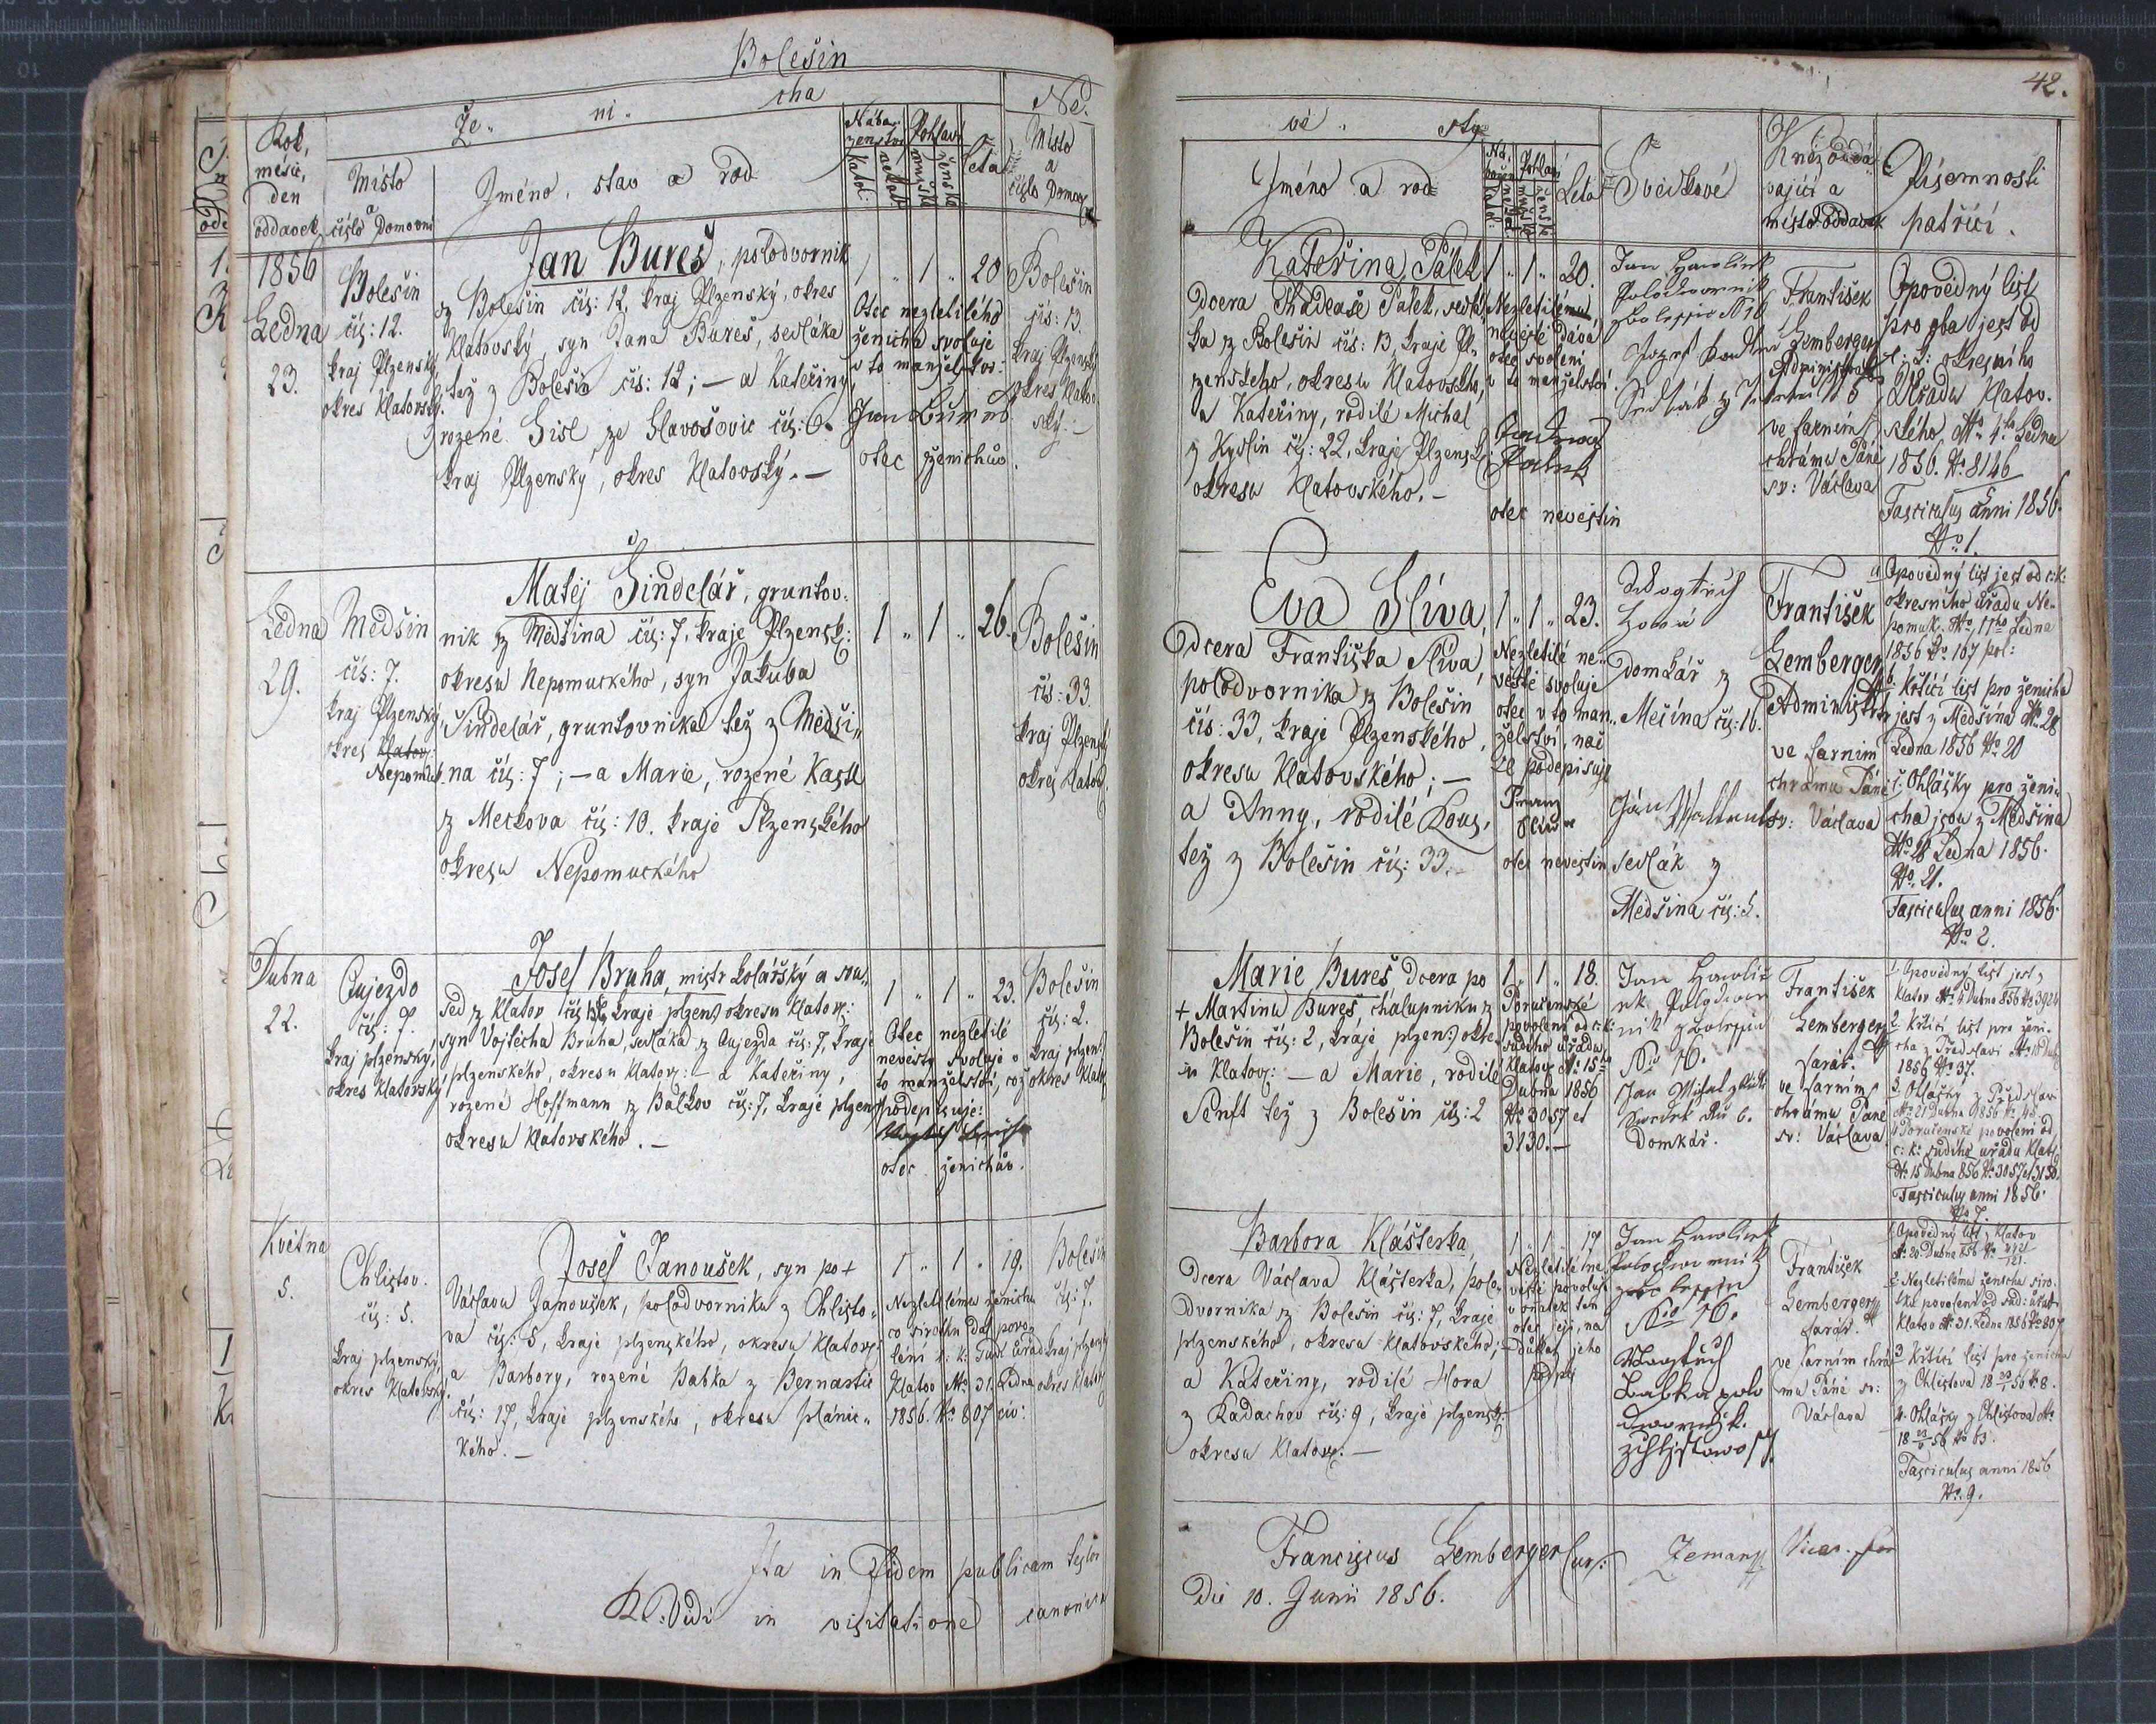 Bolešin
42.
Že ni cha
Ne
vě sty
Rok,
měsíc,
den
oddavek
Místo
a
číslo Domovní
Jméno, stav a rod
Nábo
ženstvo
katol:
nekatol:
Pohlaví
mužské
ženské
Leta
Místo
a
číslo Domov.
Jméno a rod
Ná
božen
katol:
Pohlaví
Leta
Svědkové
Kněz oddá
vající a
místo oddavek
Písemnosti
patřící.
1856
Ledna
23.
Bolešin
čís: 12.
kraj Plzenský,
okres Klatovský.
Jan Bureš, polodvorník
z Bolešin čís: 12, kraj Plzenský, okres
Klatovský, syn Jana Bureš, sedláka
též z Bolešin čís: 12; – a Kateřiny,
rozené Gisl, ze Slavošovic čís: 6.
kraj Plzenský, okres Klatovský. –
1 „ 1 „ 20
Otec nezletilého
ženicha svoluje
v to manželstvo:
otec ženichův.
Bolešin
čís: 13.
kraj Plzenský
okres Klatov
ský. –
Kateřina Pálek
Dcera Thadeaše Palek, sedlá
ka z Bolešin čís: 13, kraje Pl
zenského, okresu Klatovského,
a Kateřiny, rodilé Michal
z Kydlin čís: 22, kraje Plzensk:
okresu Klatovského. –
1 „ 1 „ 20.
Nezletilému
nevěstě dává
otec svolení
v to manželství.
otec nevěstin
Jan Hawlicek
Polodwornik
z Bolessin N 16
Sedlák z
František
Lemberger
Administrator
ve farním
chrámu Páně
sv: Václava
Opovědný list
pro oba jest od
c: k: okresního
Úřadu Klatov.
ského dto 4ho Ledna
1856. No 8146
Fasciculus anni 1856.
No 1.
Ledna
29.
Medšin
čís: 7.
kraj Plzenský
okres Klatov:
Nepomuk.
Matěj Šindelář, gruntov:
nik z Medšina čís: 7, kraje Plzensk:
okresu Nepomuckého, syn Jakuba
Šindelář, gruntovníka též z Medši„
na čís: 7; – a Marie, rozené Kastl
z Meckova čís: 10. kraje Plzenského
okresu Nepomuckého
1 „ 1 „ 26.
Bolešin
čís: 33
kraj Plzenský
okres Klatov.
Eva Slíva,
Dcera Františka Slíva,
polodvorníka z Bolešin
čís: 33, kraje Plzenského,
okresu Klatovského; –
a Anny, rodilé Kous,
též z Bolešin čís: 33.
1 „ 1 „ 23.
Nezletilé ne„
věstě svoluje
otec v to man„
želství, nač
se podepisuje
otec nevěstin
Domkář z
Mečína čís: 16.
sedlák z
Medšina čís: 5.
František
Lemberger
Administrator
ve farním
chrámu Páně
sv: Václava
Opovědný list jest od c: k:
okresního úřadu Ne„
pomuk. dto 17ho Ledna
1856 No 167 pol:
Křticí list pro ženicha
jest z Medšina dto 28
Ledna 1856 No 20
Ohlášky pro ženi„
cha jsou z Medšina
dto 28 Ledna 1856.
No 21.
Fasciculus anni 1856.
No 2.
Dubna
22.
Oujezdo
čís: 7.
kraj plzenský,
okres klatovský
Josef Bruha, mistr kolářský a sou„
sed z Klatov čís kraje plzen: okresu Klatov:
syn Vojtěcha Bruha, sedláka z Oujezda čís: 7, kraje
plzenského, okresu Klatov: – a Kateřiny,
rozené Hoffmann z Balkov čís: 7, kraje plzens:
okresu klatovského. –
1 „ 1 „ 23.
Otec nezletilé
nevěsty svoluje v
to manželství, což
podepisuje:
otec ženichův.
Bolešin
čís: 2.
kraj plzen:
okres Klatov
Marie Bureš, Dcera po
+ Martinu Bureš, chalupníku z
Bolešin čís: 2, kraje plzen: okre
su Klatov: – a Marie, rodilé
Senft též z Bolešin čís: 2
1 „ 1 „ 18.
Poručenské
povolení od c: k:
sudího úřadu
Klatov dto 15ho
Dubna 1856
No 3057 et
3130. –
Jan Hawlic
ek Polodwor
nik z Bolessin
No 16.
Domkář.
František
Lemberger
farář.
ve farním
chrámu Páně
sv: Václava.
1. Opovědný list jest z
Klatov dto 4 Dubna 856 No 3924
2. Křticí list pro ženi„
cha z Předslavi
1856 No 37.
3. Ohlášky z Předslavi
dto 21 Dubna 1856 No 45
4. Poručenské povolení od
c: k: sudího úřadu Klatov
dto 15 Dubna 856 No 3057 et 3130.
Fasciculus anni 1856.
No 7.
Května
5.
Chlistov.
čís: 5.
kraj plzenský,
okres klatovský.
Josef Janoušek, syn po +
Václavu Janoušek, polodvorníku z Chlisto„
va čís: 5, kraje plzenského, okresu klatov:
a Barbory, rozené Babka z Bernartic
čís: 17, kraje plzenského, okresu plánic„
kého. –
1 „ 1 „ 19.
Nezletilému ženichu
co sirotku dal povo„
lení c: k: Sud: úřad
Klatov dto 31. Ledna
1856. No 807 civ:
Bolešin
čís: 7,
kraj plzenský
okres Klatov
Barbora Klášterka,
Dcera Václava Klášterka, polo„
dvorníka z Bolešin čís: 7, kraje
plzenského, okresu klatovského;
a Kateřiny, rodilé Hora
z Radachov čís: 9, kraje plzensk:
okresu Klatov: –
1 „ 1 „ 17
Nezletilé ne
věstě povoluje
otec její, na
důkaz jeho
podpis
Jan Hawlicek
Polodwornik
z Bolessin
No 16.
Babka polo
dwornik.
František
Lemberger
farář.
ve farním chrá
mu Páně sv:
Václava
1. Opovědný list z Klatov
dto 20. Dubna 856
2. Nezletilému ženichu siro„
tku povolení od sud: úřadu
Klatov dto 31. Ledna 1856 No 807
3. Křticí list pro ženicha
z Chlistova
4. Ohlášky z Chlistova dto
Fasciculus anni 1856
No 9.
Ita in Fidem publicam testor
Franciscus Lemberger Cur:
Vidi in visitatione canonica
Die 10. Junii 1856.
Zeman Vicar. for